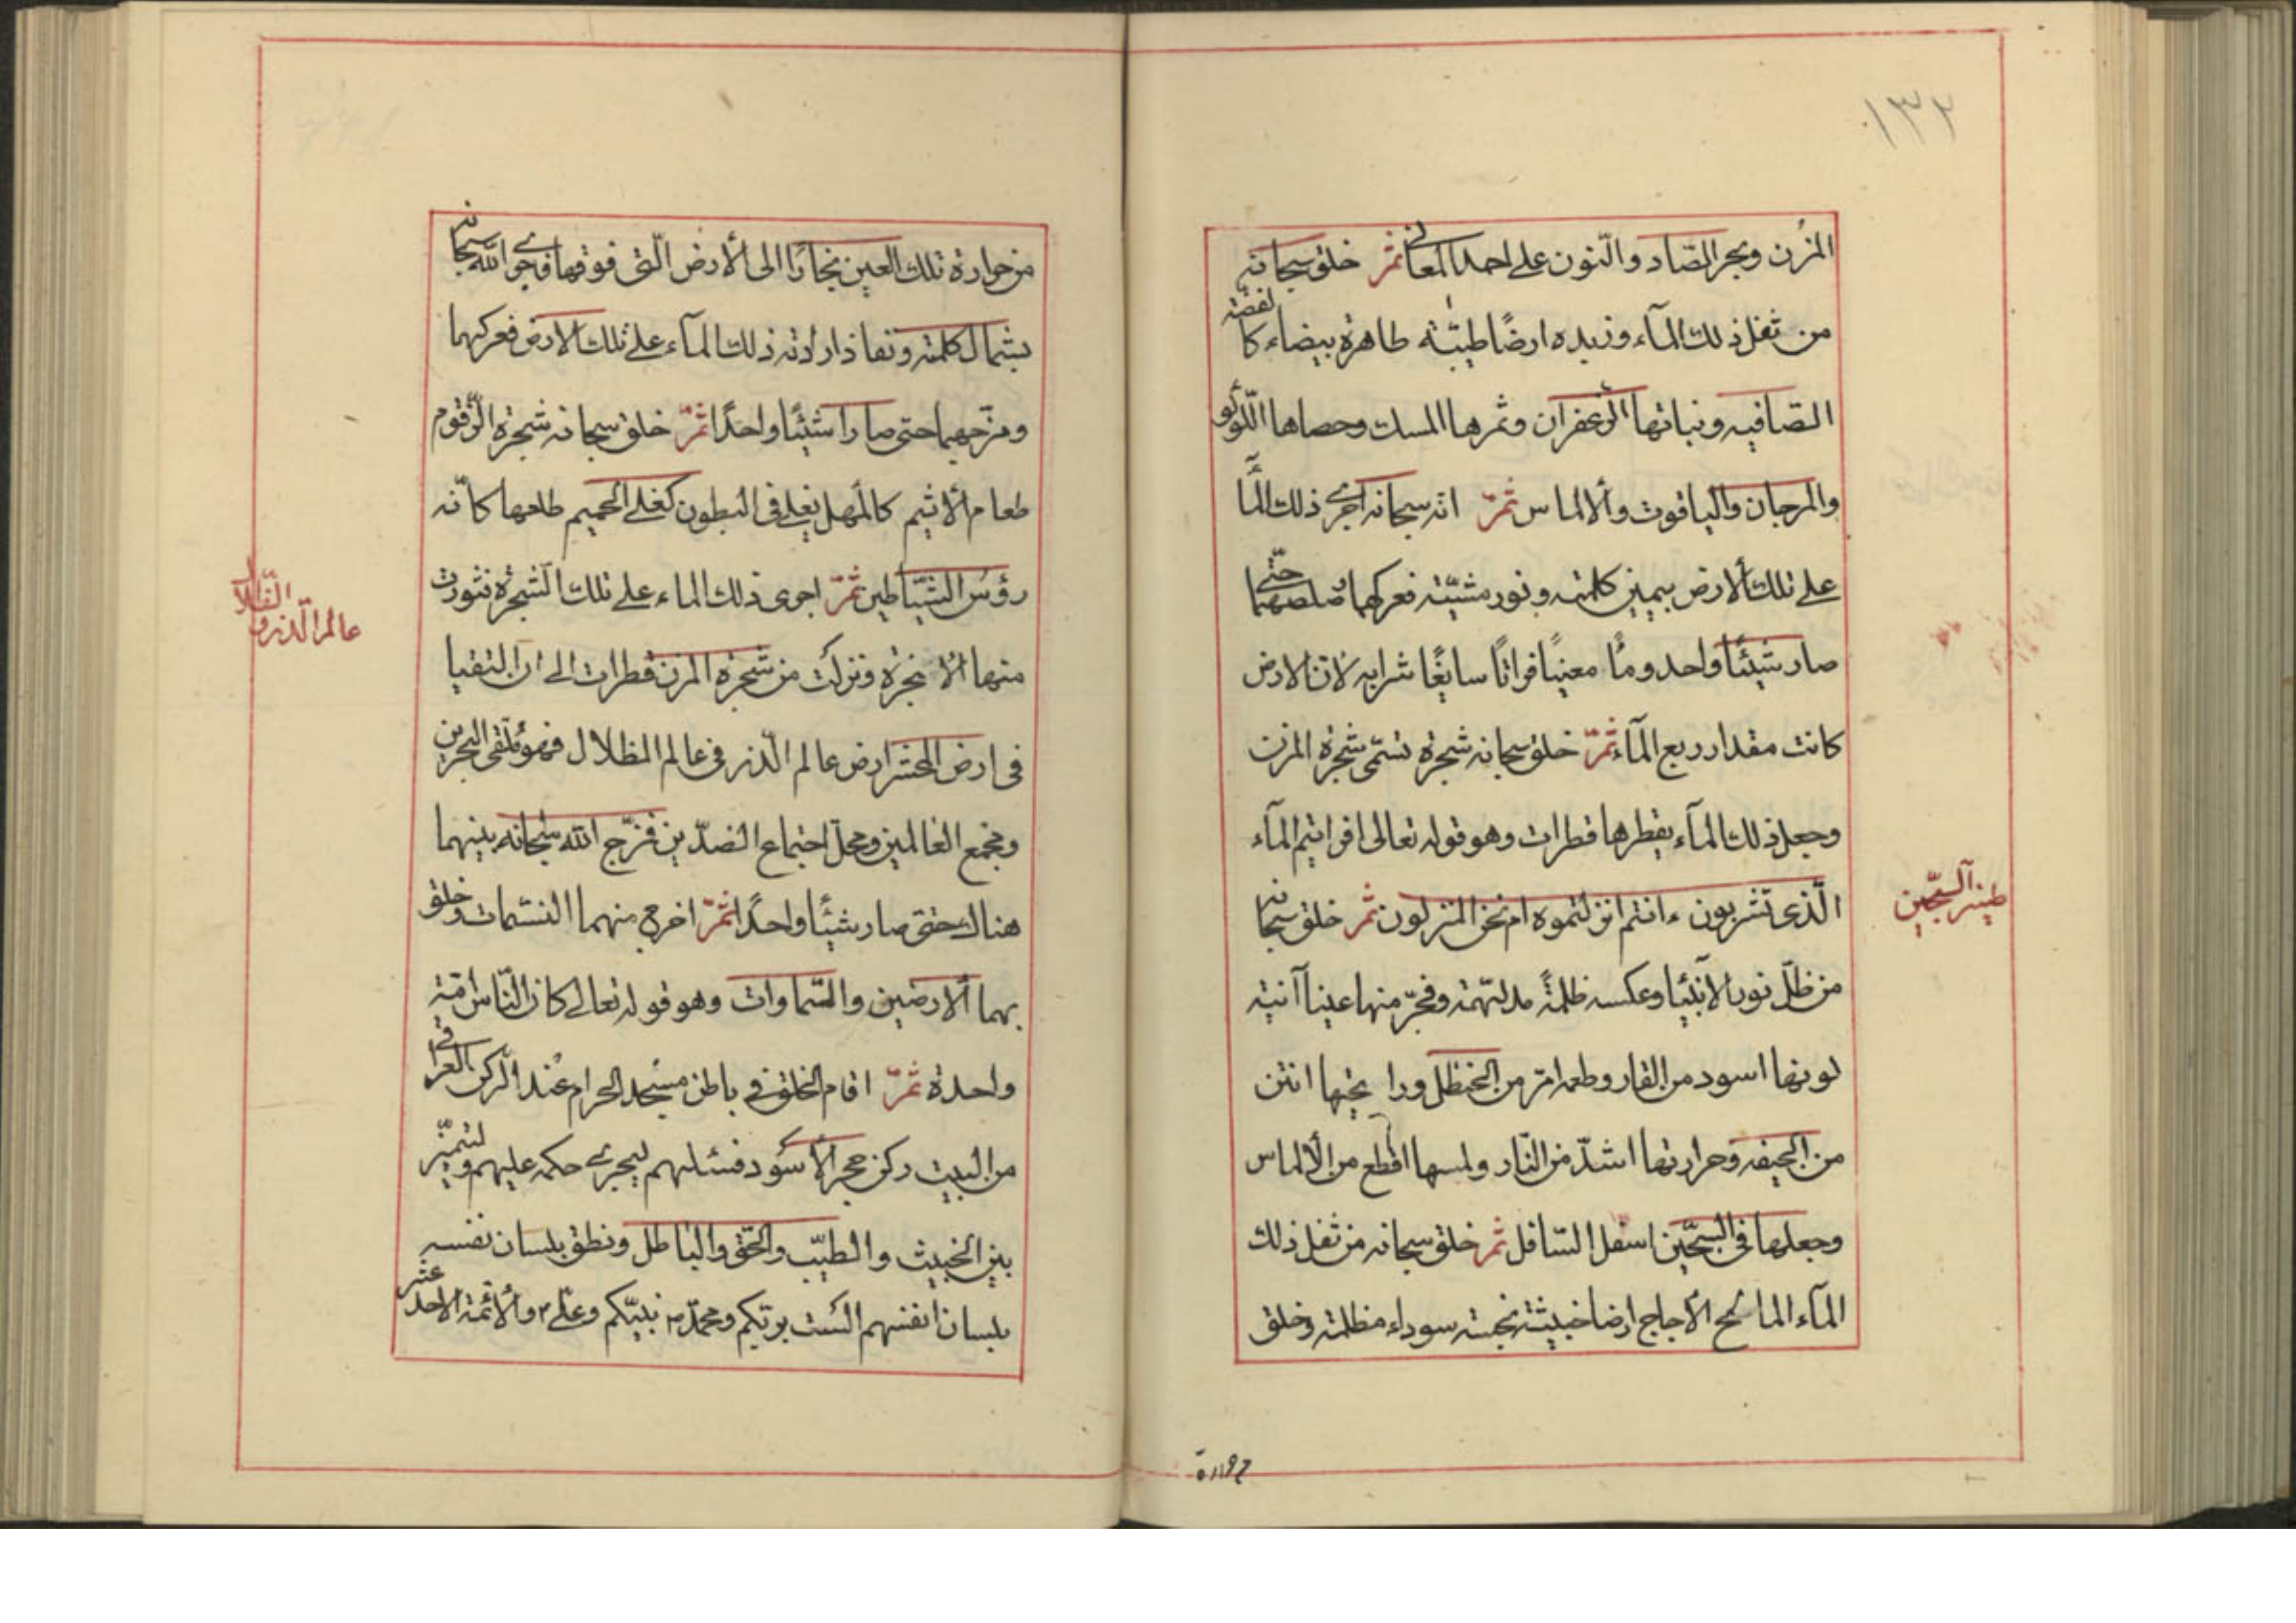 ١٣٢
المزن وبحر الصّاد والنّون على احد المعانى ثمّ خلق سبحانه
من ثفل ذلك المآء وزبده ارضًا طيّبة طاهرة بيضاء كالفضّة
الصّافيه ونباتها الزّعفران وثمرها المسك وحصاها اللّؤلؤ
والمرجان والياقوت والالماس ثمّ انّه سبحانه اجرى ذلك المآء
على تلك الارض بيمين كلمته ونور مشيّته فعركهما وصلصلهما حتّى
صار شيئًا واحد ومآء معينًا فراتًا سايغًا شرابه لانّ الارض
كانت مقدار ربع المآء ثمّ خلق سبحانه شجرة تسمّى شجرة المزن
وجعل ذلك المآء يقطرها قطرات وهو قوله تعالى افرايتم المآء
الّذى تشربون ءانتم انزلتموه ام نحن المنزلون ثمّ خلق سبحانه
من ظلّ نور الانبيآء وعكسه ظلمةً مدلهّمة وفجّر منها عينا آنية
لونها اسود من القار وطعمه امرّ من الحنظل ورايحتها انتن
من الجيفه وحرارتها اشدّ من النّار ولمسها اقطع من الالماس
وجعلها فى السّجّين اسفل السّافل ثمّ خلق سبحانه من ثفل ذلك
المآء المالح الأجاج ارضا خبيثة نجسة سوداء مظلمة وخلق
طينة السّجّين
من حرارة تلك العين بخارًا الى الأرض الّتى فوقها فاجرى الله سبحانه
بشمال كلمته ونفاذ ارادته ذلك المآء على تلك الارض فعركهما
ومزّجهما حتى صارا شيئًا واحدًا ثمّ خلق سبحانه شجرة الزّقوم
طعام الأثيم كالمهل يغلى فى البطون كغلى الحميم طلعها كانّه
رؤس الشّياطين ثمّ اجرى ذلك الماء على تلك الشّجرة فثورت
منها الابخرة ونزلت من شجرة المزن قطرات الى ان التقيا
فى ارض المحشر ارض عالم الّذر فى عالم الظلال فهو ملتقى البحرين
ومجمع العالمين ومحلّ اجتماع الضدّين فمزّج الله سبحانه بينهما
هناك حتى صار شيئًا واحدًا ثمّ اخرج منهما النسمات وخلق
بهما الارضين والسّماوات وهو قوله تعالى كان النّاس أمّة
واحدة ثمّ اقام الخلق فى باطن مسجد الحرام عند الرّكن العراقى
من البيت ركن حجر الأسود فسئلهم ليجرى حكمه عليهم ولتميّز
بين الخبيث والطيّب والحّق والباطل ونطق بلسان نفسه
بلسان انفسهم الست بربّكم ومحمّد ص نبيّكم وعلّى ع والأئمّة الاحد عشر
عالم الّذر و الظّلال